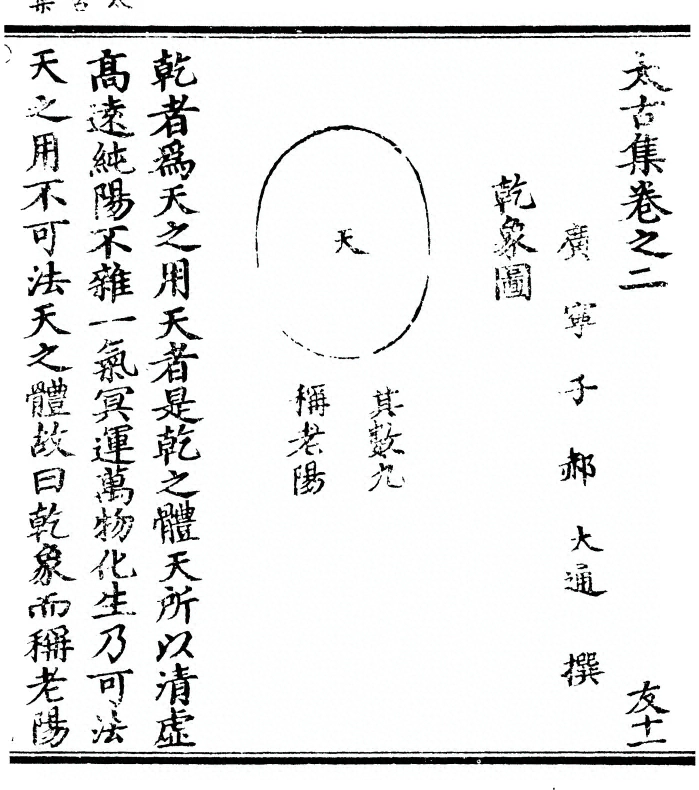 太古集卷之二
友十一
廣寧子郝大通撰
乾象圖
天
其數九
稱老陽
乾者爲天之用天者是乾之體天所以清虛
高遠純陽不雜一氣冥運萬物化生乃可法
天之用不可法天之體故曰乾象而稱老陽